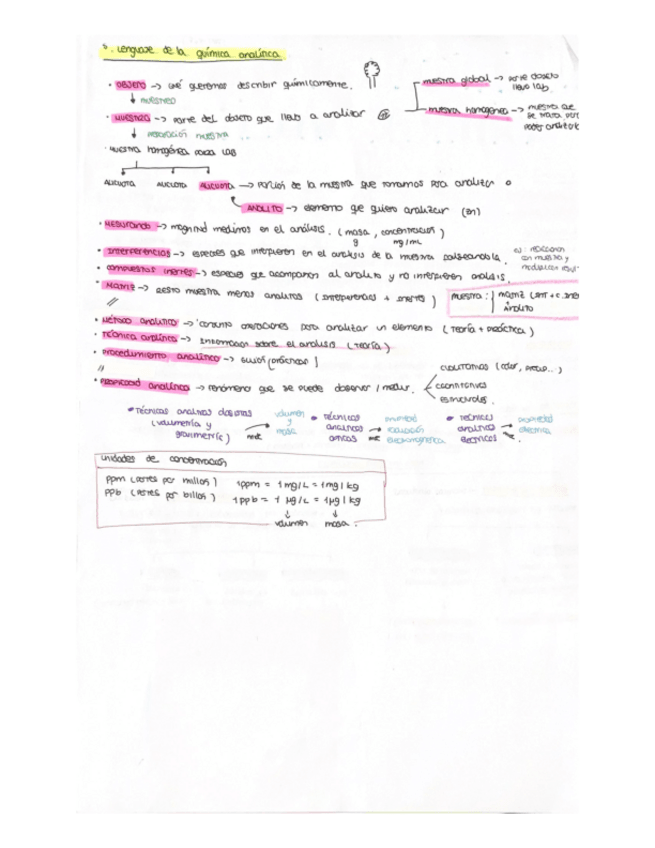 . Lenguaje de la química analítica
· OBJETO -> qué queremos describir químicamente.
muestra global -> parte del objeto llevo lab
↓ muestreo
muestra homogénea -> muestra que se trata para poder
· MUESTRA -> parte del objeto que llevo a analizar
↓ preparación muestra
· Muestra homogénea LAB
ALICUOTA ALICUOTA ALICUOTA -> porción de la muestra que tomamos para analizar
ANALITO -> elemento que quiero analizar (Zn)
· MESURANDO -> magnitud medimos en el análisis. (masa, concentración)
g mg/mL
· Interferencias -> especies que interfieren en el análisis de la muestra
ej: reaccionan con muestra y
· Compuestos inertes -> especies que acompañan al analito y no interfieren análisis.
· MATRIZ -> Resto muestra menos analitos (interferencias + inertes)
muestra: matriz (INT + C.
Analito
//
· MÉTODO analítico -> conjunto operaciones para analizar un elemento (teoría + práctica)
· Técnica analítica -> Información sobre el análisis (teoría)
· Procedimiento analítico -> guion (prácticas)
//
cualitativas (olor, ...)
· PROPIEDAD analítica -> fenómeno que se puede observar / medir.
cuantitativas
estructurales.
• Técnicas analíticas clásicas (volumetría y gravimetría) -> mide volumen y masa
• Técnicas analíticas ópticas -> mide radiación electromagnética
• Técnicas analíticas eléctricas -> mide propiedad eléctrica.
unidades de concentración
ppm (partes por millón) 1ppm = 1mg/L = 1mg/kg
ppb (partes por billón) 1ppb = 1 µg/L = 1µg/kg
↓ ↓
volumen masa.